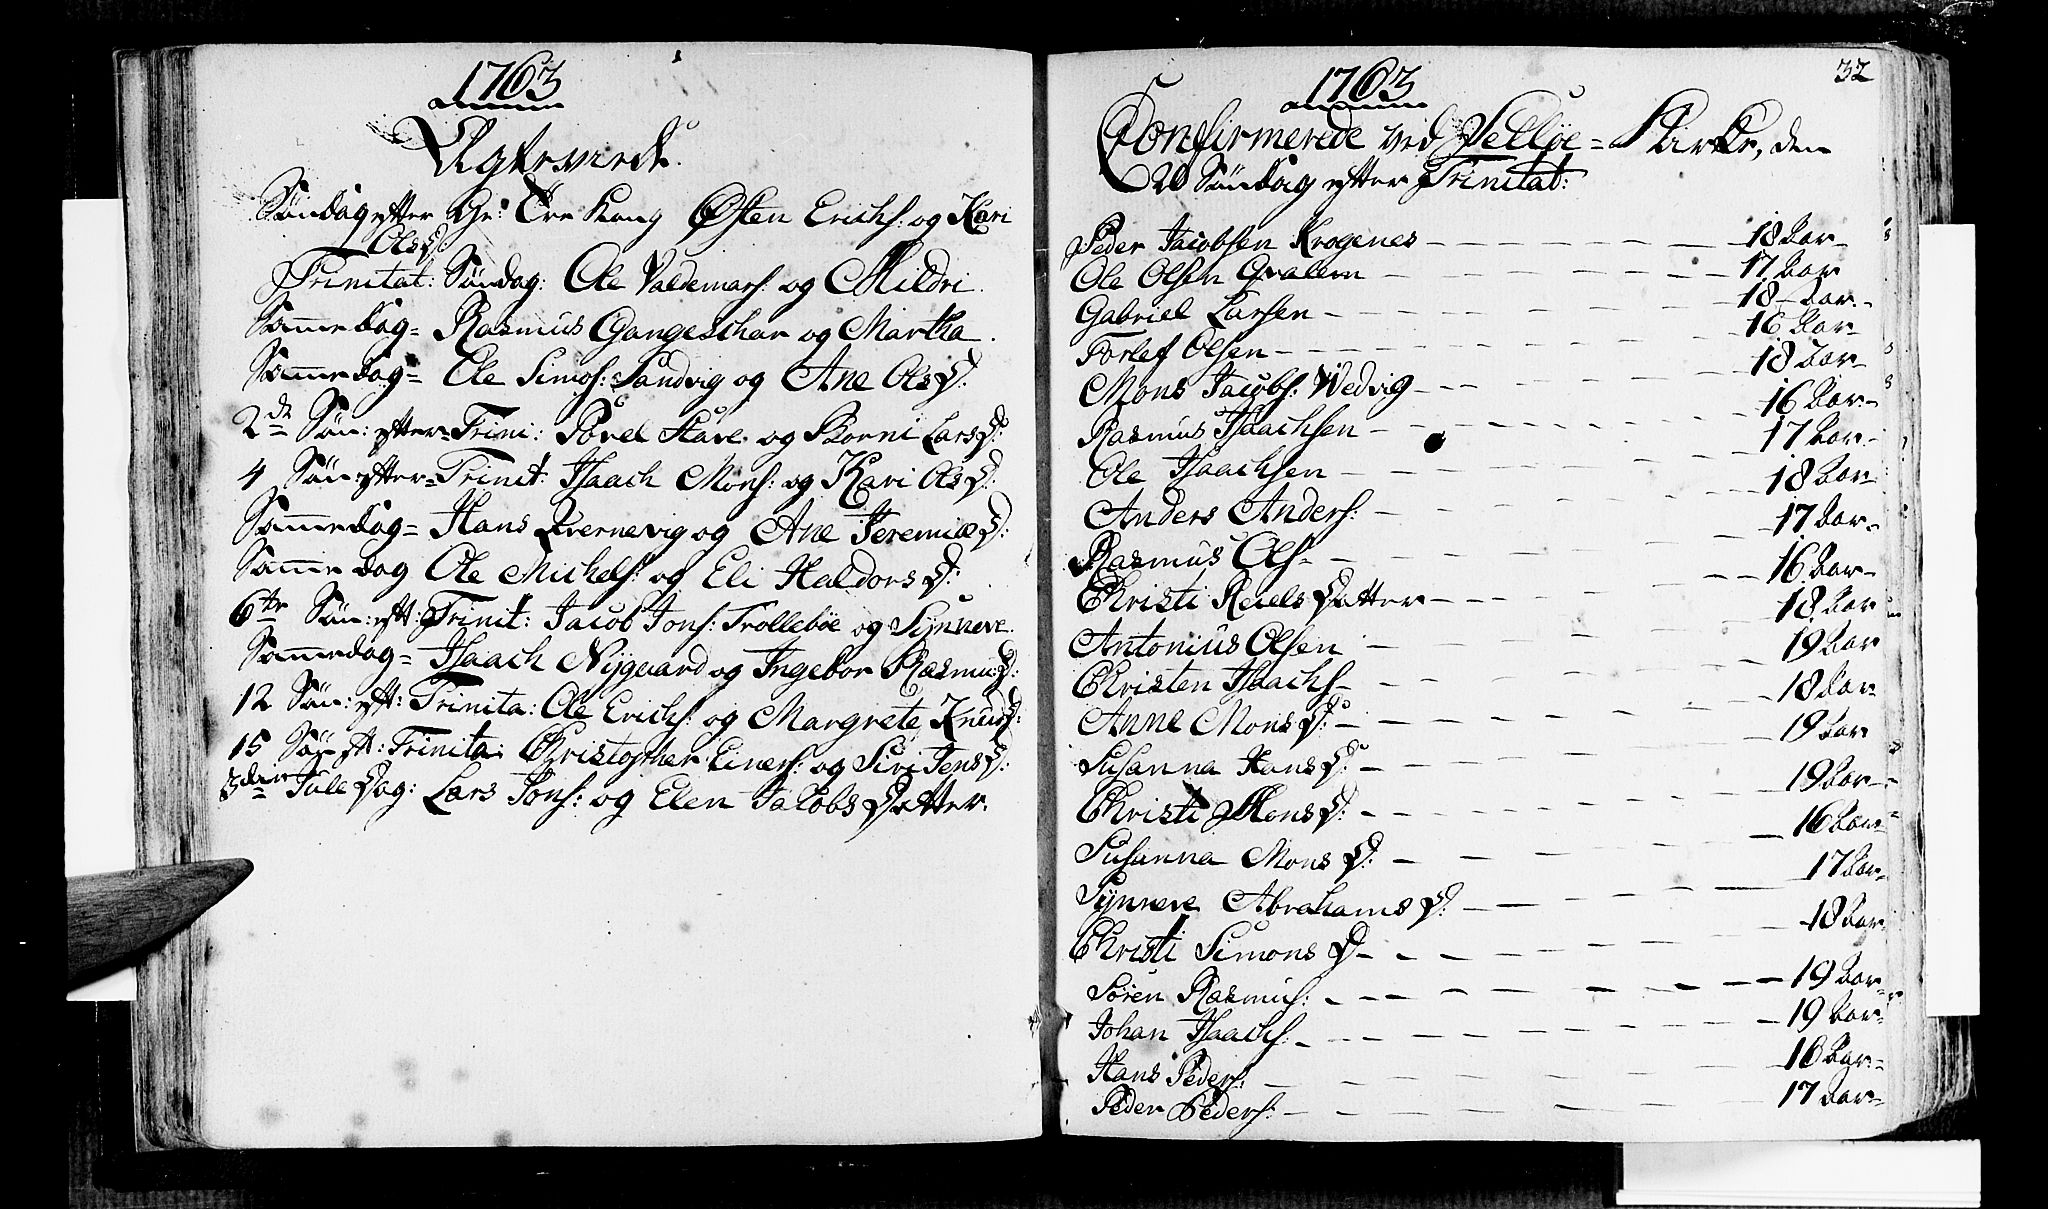 1763
Egteviede.
Søndag efter Ør: Tre Kong Østen Erichs: og Kari
OlsD:
Trinitat: Søndag: Ole Valdemars: og Mildri.
Samme dag= Rasmus Gangeschar og Martha.
Samme dag= Ole Simos: Sandvig og Ane OlsD:
2de Søn: efter=Trini: Povel Have og Skorni LarsD:
4 Søn: efter=Trinit: Isaach Mons: og Kari OlsD:
Samme dag= Hans Qvernevig og Ane JeremiæD:
Samme dag Ole Michels: og Eli HaldorsD:
6te Søn: eft: Trinit: Jacob Jons: Trollebøe og Synneve.
Samme dag= Isaach Nygaard og Ingebor RasmusD:
12 Søn: eft: Trinita: Ole Erichs: og Margrete KnudsD:
15 Søn eft: Trinita: Christopher Einers: og Siri JensD:
3den Jule Dag: Lars Jons: og Elen Jacobs Datter.
32
1763
Confirmerede ved Selløe= Kirke, den
20 Søndag efter Trinitat:
Peder Jacobsen Krogenes — 18 Aar
Ole Olsen Qvalem — 17 Aar
Gabriel Larsen — 18 Aar
Torlef Olsen — 16 Aar
Mons Jacobs: Wedvig — 18 Aar
Rasmus Isaachsen — 16 Aar
Ole Isaachsen — 17 Aar
Anders Anders: — 18 Aar
Rasmus Ols — 17 Aar
Christi Reiels Datter — 16 Aar
Antonius Olsen — 18 Aar
Christen Isaachs — 19 Aar
Anne Mons D: — 18 Aar
Susanna Hans D: — 19 Aar
Christi Mons D: — 19 Aar
Susanna Mons D: — 16 Aar
Synneve Abrahams D: — 17 Aar
Christi Simons D — 18 Aar
Sören Rasmus: — 19 Aar
Johan Isaachs: — 19 Aar
Hans Peders: — 16 Aar
Peder Peders: — 17 Aar